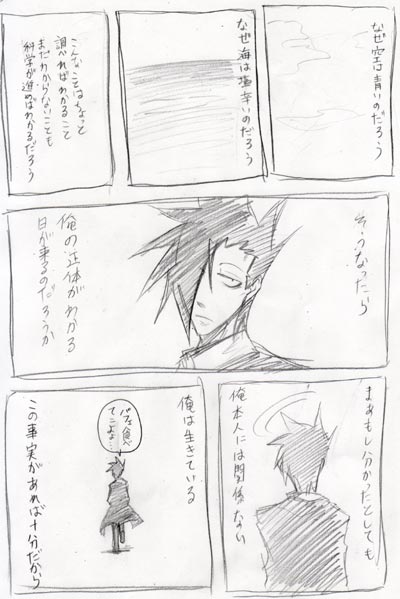 なぜ空は青いのだろう
なぜ海は塩辛いのだろう
こんなことはちょっと
調べればわかること
まだわからないことも
科学が進めばわかるだろう
そうなったら
俺の正体がわかる
日が来るのだろうか
まあもし分かったとしても
俺本人には関係ない
俺は生きている
パフェ食べ
てこよ…
この事実があれば十分だから